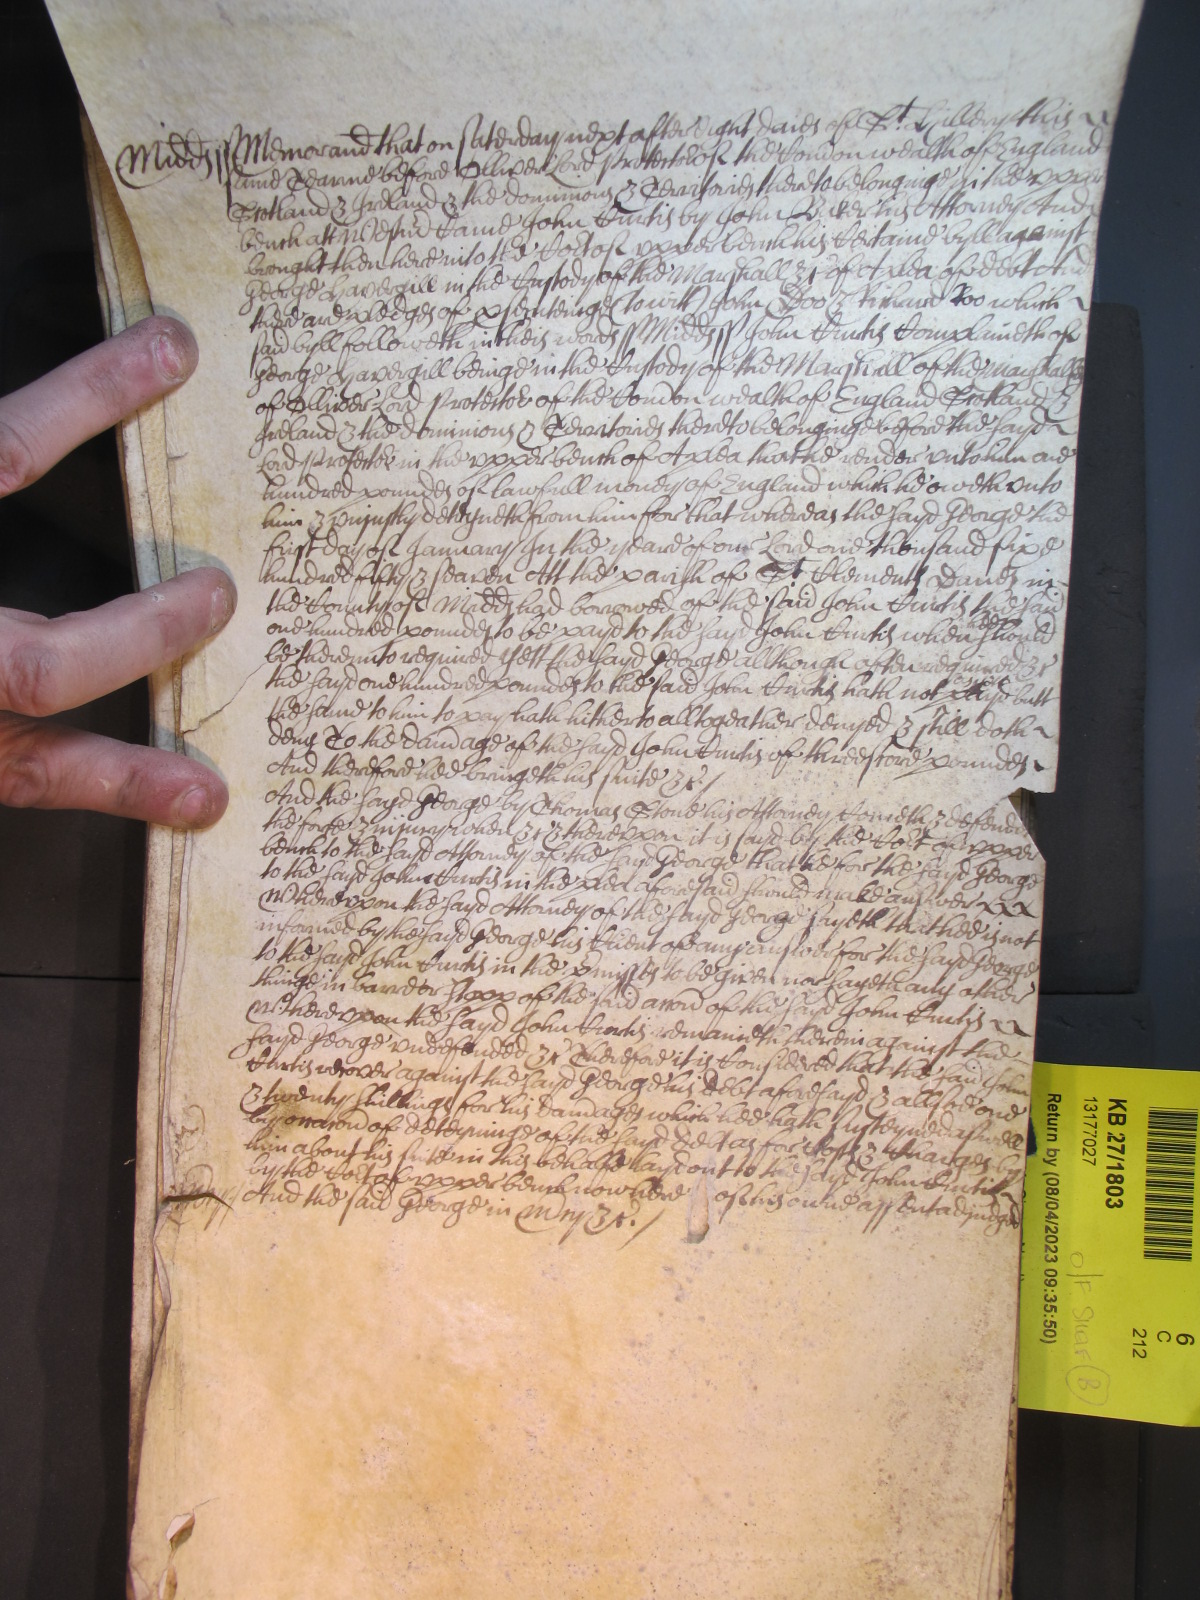 Midds ss Memorand that on Saterday next after eight daies of St Hillery this
same Tearme before Olliver Lord Protector of the Comon wealth of England
Scotland & Ireland & the dominions & Territories thereto belonginge in the upper
bench att Westmr Came John Curtis by John his Attorney And
brought then here into the Cort of upper bench his Certaine byll against
George Havergill in the Custody of the Marshall &c of A plea of debt And
there are pledges of psecutinge (to witt) John Doo & Richard Roo which
said byll followeth in theis words ss Midds ss John Curtis Complaineth of
George Havergill beinge in the Custody of the Marshall of the Marshallsy
of Olliver Lord Protector of the Comon wealth of England Scotland &
Ireland & the dominions & Territories thereto belonginge before the sayd
Lord Protector in the upper bench of A plea that he render unto him one
hundred poundes of lawfull money of England which he oweth unto
him & uniustly deteyneth from him for that whereas the sayd George the
first day of January In the yeare of our Lord one thousand sixe
hundred fifty & seaven Att the parish of St Clements Danes in
the County of Midds had borrowed of the said John Curtis the said
one hundred poundes to be payd to the sayd John Curtis when hee should
be thereunto required Yett the sayd George allthough often required &c
the sayd one hundred poundes to the said John Curtis hath not payd butt
the same to him to pay hath hitherto alltogeather denyed & still doth
deny To the damage of the sayd John Curtis of threescore poundes
And therefore hee bringeth his suite &c /
And the sayd George by Thomas Stone his Attorney Cometh & defendes
the force & iniury when &c & thereupon it is sayd by the Cort of upper
bench to the sayd Attorney of the sayd George that he for the sayd George
to the sayd John Curtis in the plea aforesaid should make answer
Whereupon the sayd Attorney of the sayd George sayeth that hee is not
informed by the sayd George his Client of any answer for the sayd George
to the sayd John Curtis in the pmisses to be given nor sayeth any other
thinge in barr or stopp of the said accon of the sayd John Curtis
Whereupon the sayd John Curtis remaineth therein against the
sayd George undefended &c Therefore it is Considered that the said John
Curtis recover against the sayd George his debt aforesayd & allsoe one
& twenty shillings for his damages which hee hath susteyned aswell
by occacon of deteyninge of the sayd debt as for Costs & Charges by
him about his suite in this behalfe layd out to the sayd John Curtis
by the Cort of upper bench now here of his owne assent adjudged
And the said George in Mcy &c. /
KB 27/1803
13177027
Return by (08/04/2023 09:35:50)
6
C
212